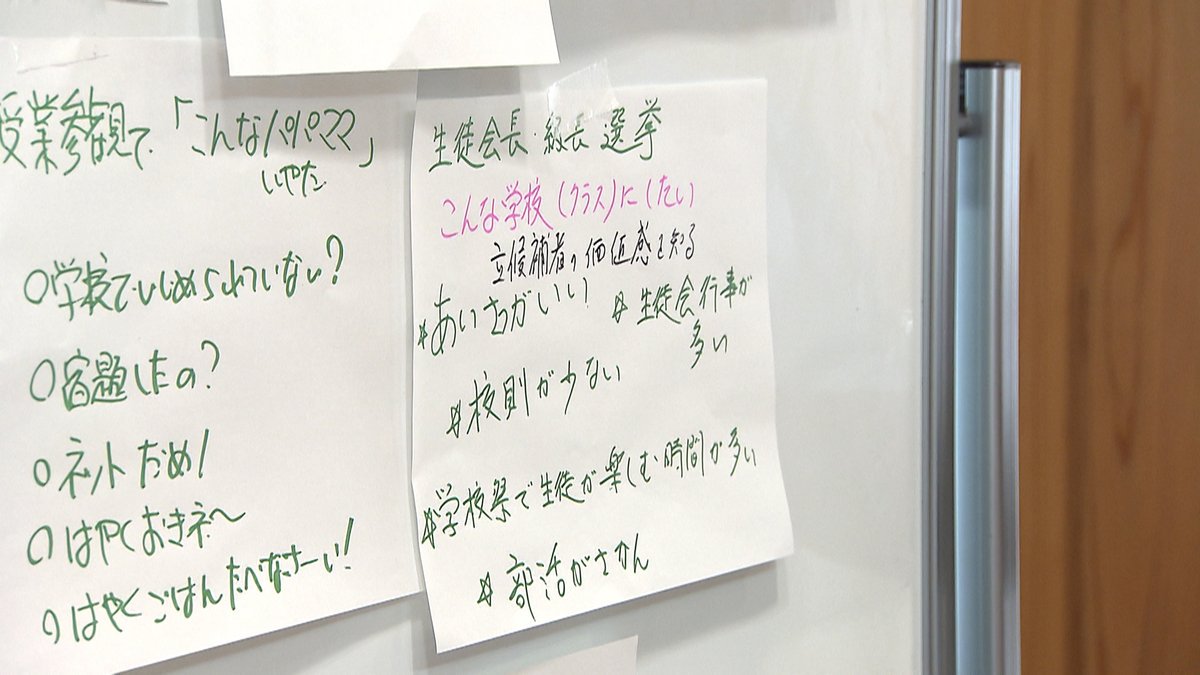 受業参観で「こんなパパママ」
いやだ
○学校でいじめられていない?
○宿題したの?
○ネットだめ!
○はやくおきネ〜
○はやくごはんたべなさーい!
生徒会長・級長 選挙
こんな学校(クラス)にしたい
立候補者の価値感を知る
*あいさつがいい
*生徒会行事が
多い
*校則が少ない
*学校祭で生徒が楽しむ時間が多い
*部活がさかん